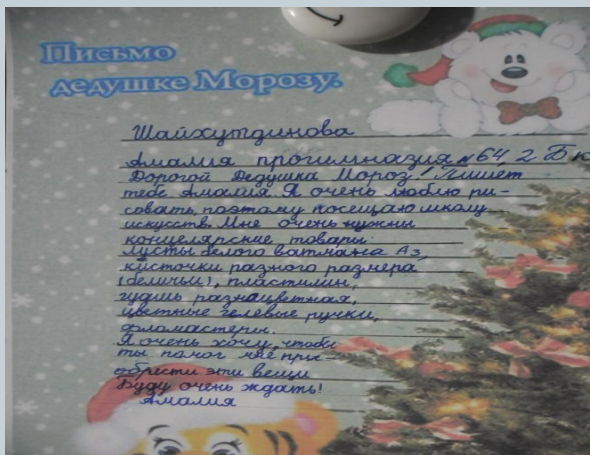 Письмо
дедушке Морозу.
Шайхутдинова
Амалия прогимназия №64, 2 Б
Дорогой Дедушка Мороз! Пишет
тебе Амалия. Я очень люблю ри-
совать, поэтому посещаю школу
искусств. Мне очень нужны
концелярские товары:
листы белого ватмана А3,
кисточки разного размера
(беличьи), пластилин,
гуашь разноцветная,
цветные гелевые ручки,
фломастеры.
Я очень хочу, чтобы
ты помог мне при-
обрести эти вещи
Буду очень ждать!
Амалия